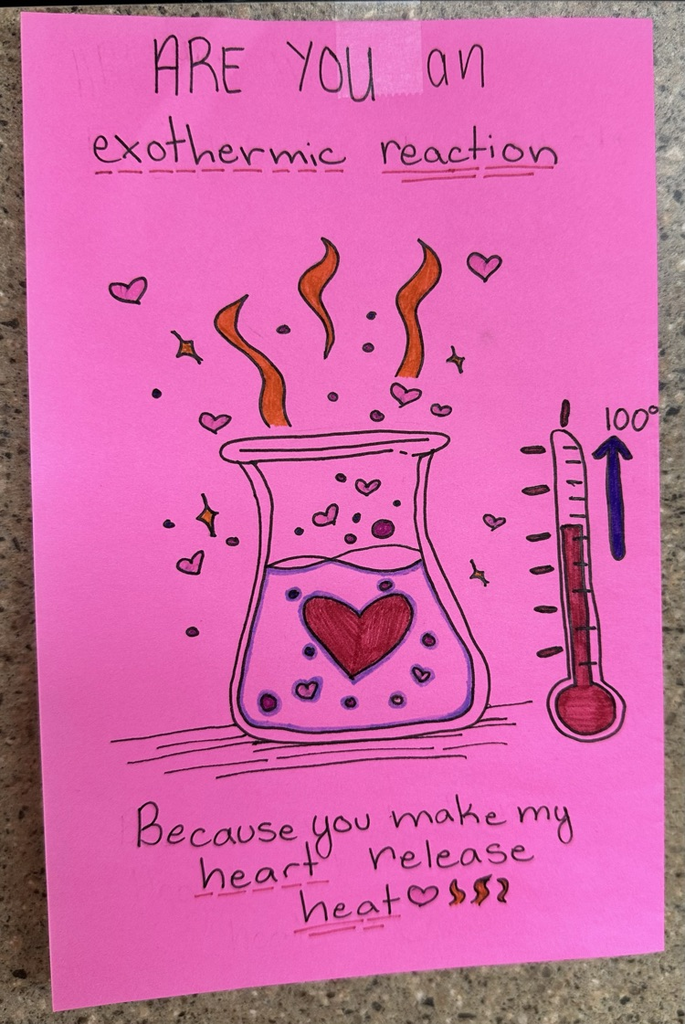 ARE YOU an
exothermic reaction
100°
Because you make my
heart release
heat